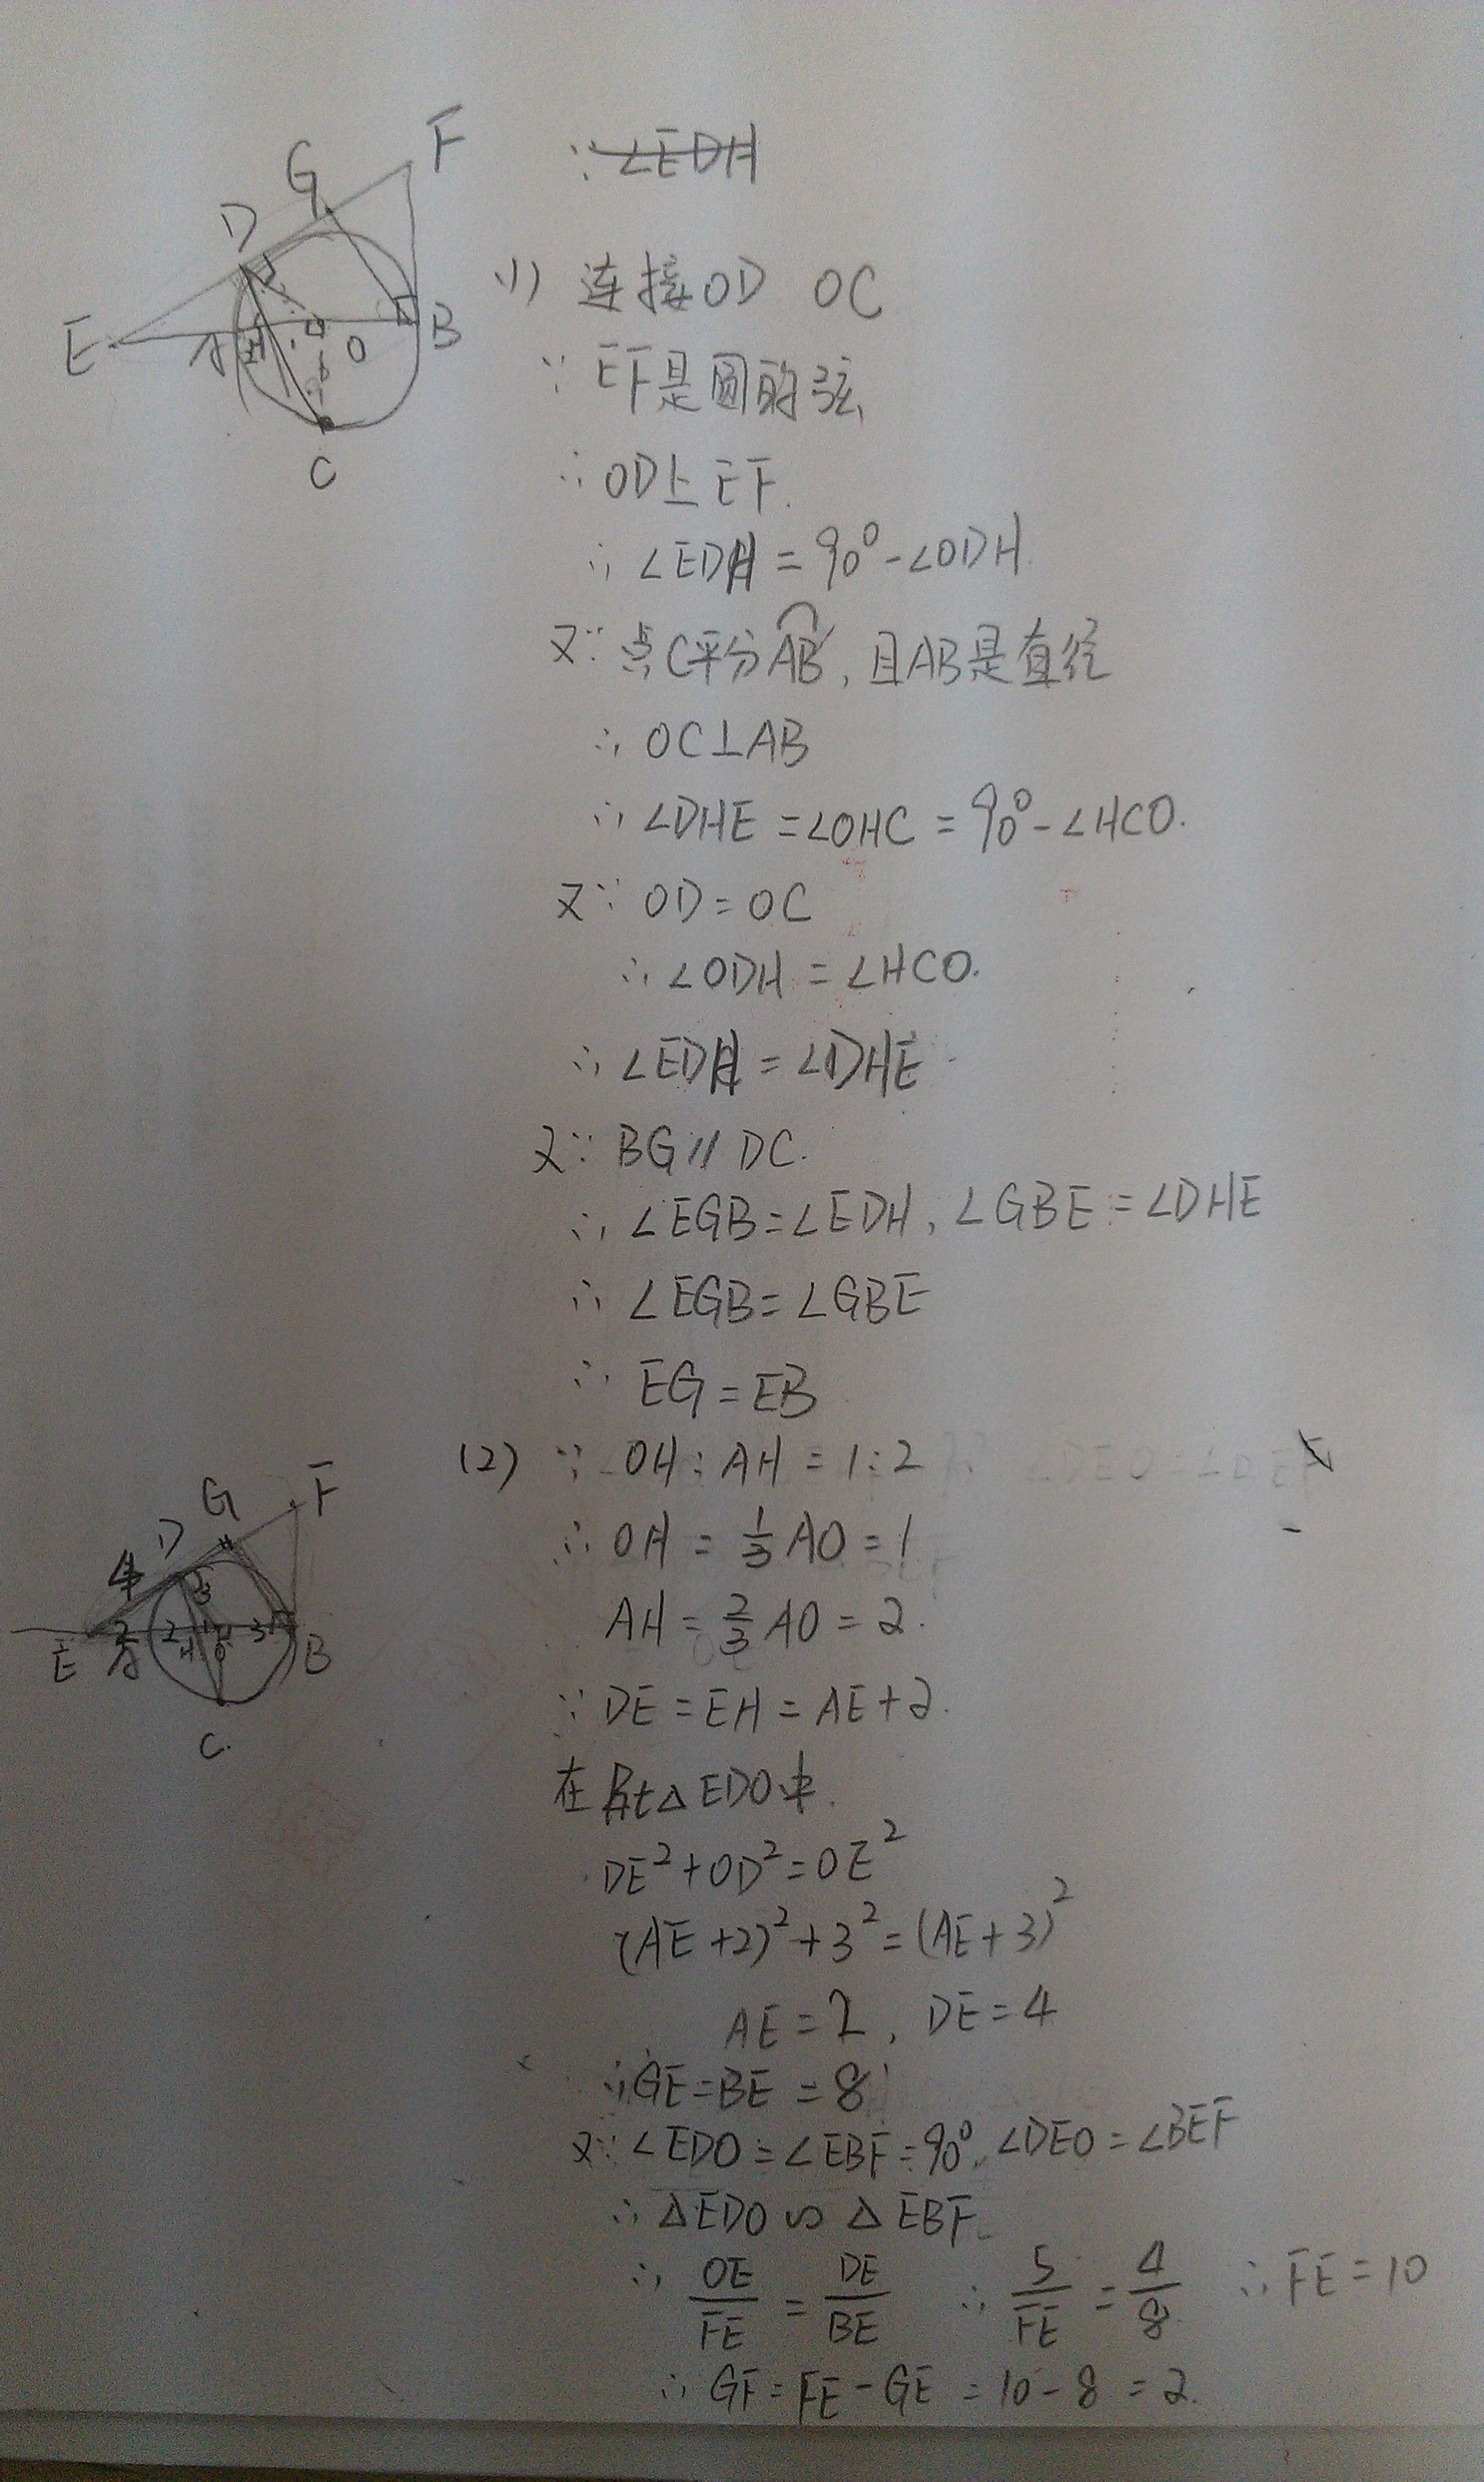 G F
D
E A H O B
C
∵ ∠EDH
(1) 连接OD OC
∵ EF是圆的弦
∴ OD⊥EF.
∴ ∠EDH = 90° - ∠ODH.
又∵ 点C平分AB, 且AB是直径
∴ OC⊥AB
∴ ∠DHE = ∠OHC = 90° - ∠HCO.
又∵ OD = OC
∴ ∠ODH = ∠HCO.
∴ ∠EDH = ∠DHE
又∵ BG∥DC.
∴ ∠EGB = ∠EDH, ∠GBE = ∠DHE
∴ ∠EGB = ∠GBE
∴ EG = EB
(2) ∵ OH : AH = 1 : 2
G F
D
4 3
2 2 1 3
E A H O B
C.
∴ OH = 1/3 AO = 1
AH = 2/3 AO = 2.
∵ DE = EH = AE + 2.
在Rt△EDO中.
DE² + OD² = OE²
(AE + 2)² + 3² = (AE + 3)²
AE = 2, DE = 4
∴ GE = BE = 8
又∵ ∠EDO = ∠EBF = 90°, ∠DEO = ∠BEF
∴ △EDO ∽ △EBF
∴ OE/FE = DE/BE ∴ 5/FE = 4/8 ∴ FE = 10
∴ GF = FE - GE = 10 - 8 = 2.